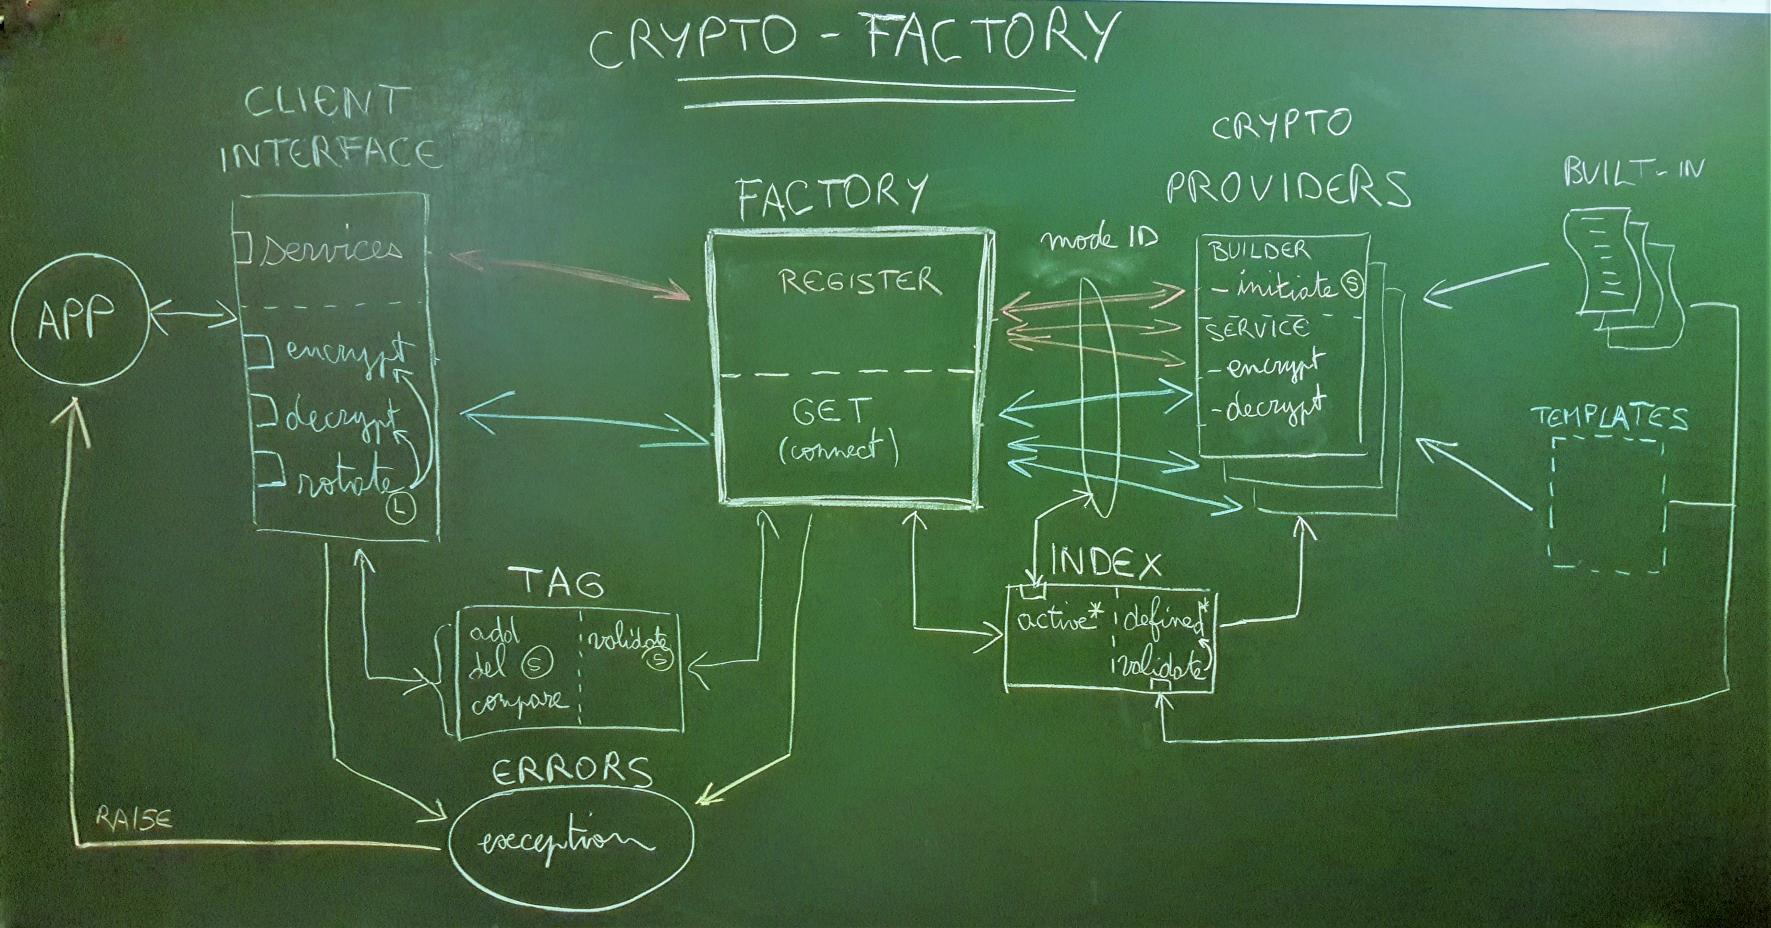 CRYPTO - FACTORY
CLIENT
INTERFACE
services
encrypt
decrypt
rotate
L
APP
FACTORY
REGISTER
GET
(connect)
mode ID
CRYPTO
PROVIDERS
BUILDER
- initiate S
SERVICE
- encrypt
- decrypt
BUILT-IN
TEMPLATES
TAG
add
del S
compare
validate
S
INDEX
active*
defined*
validate
ERRORS
exception
RAISE